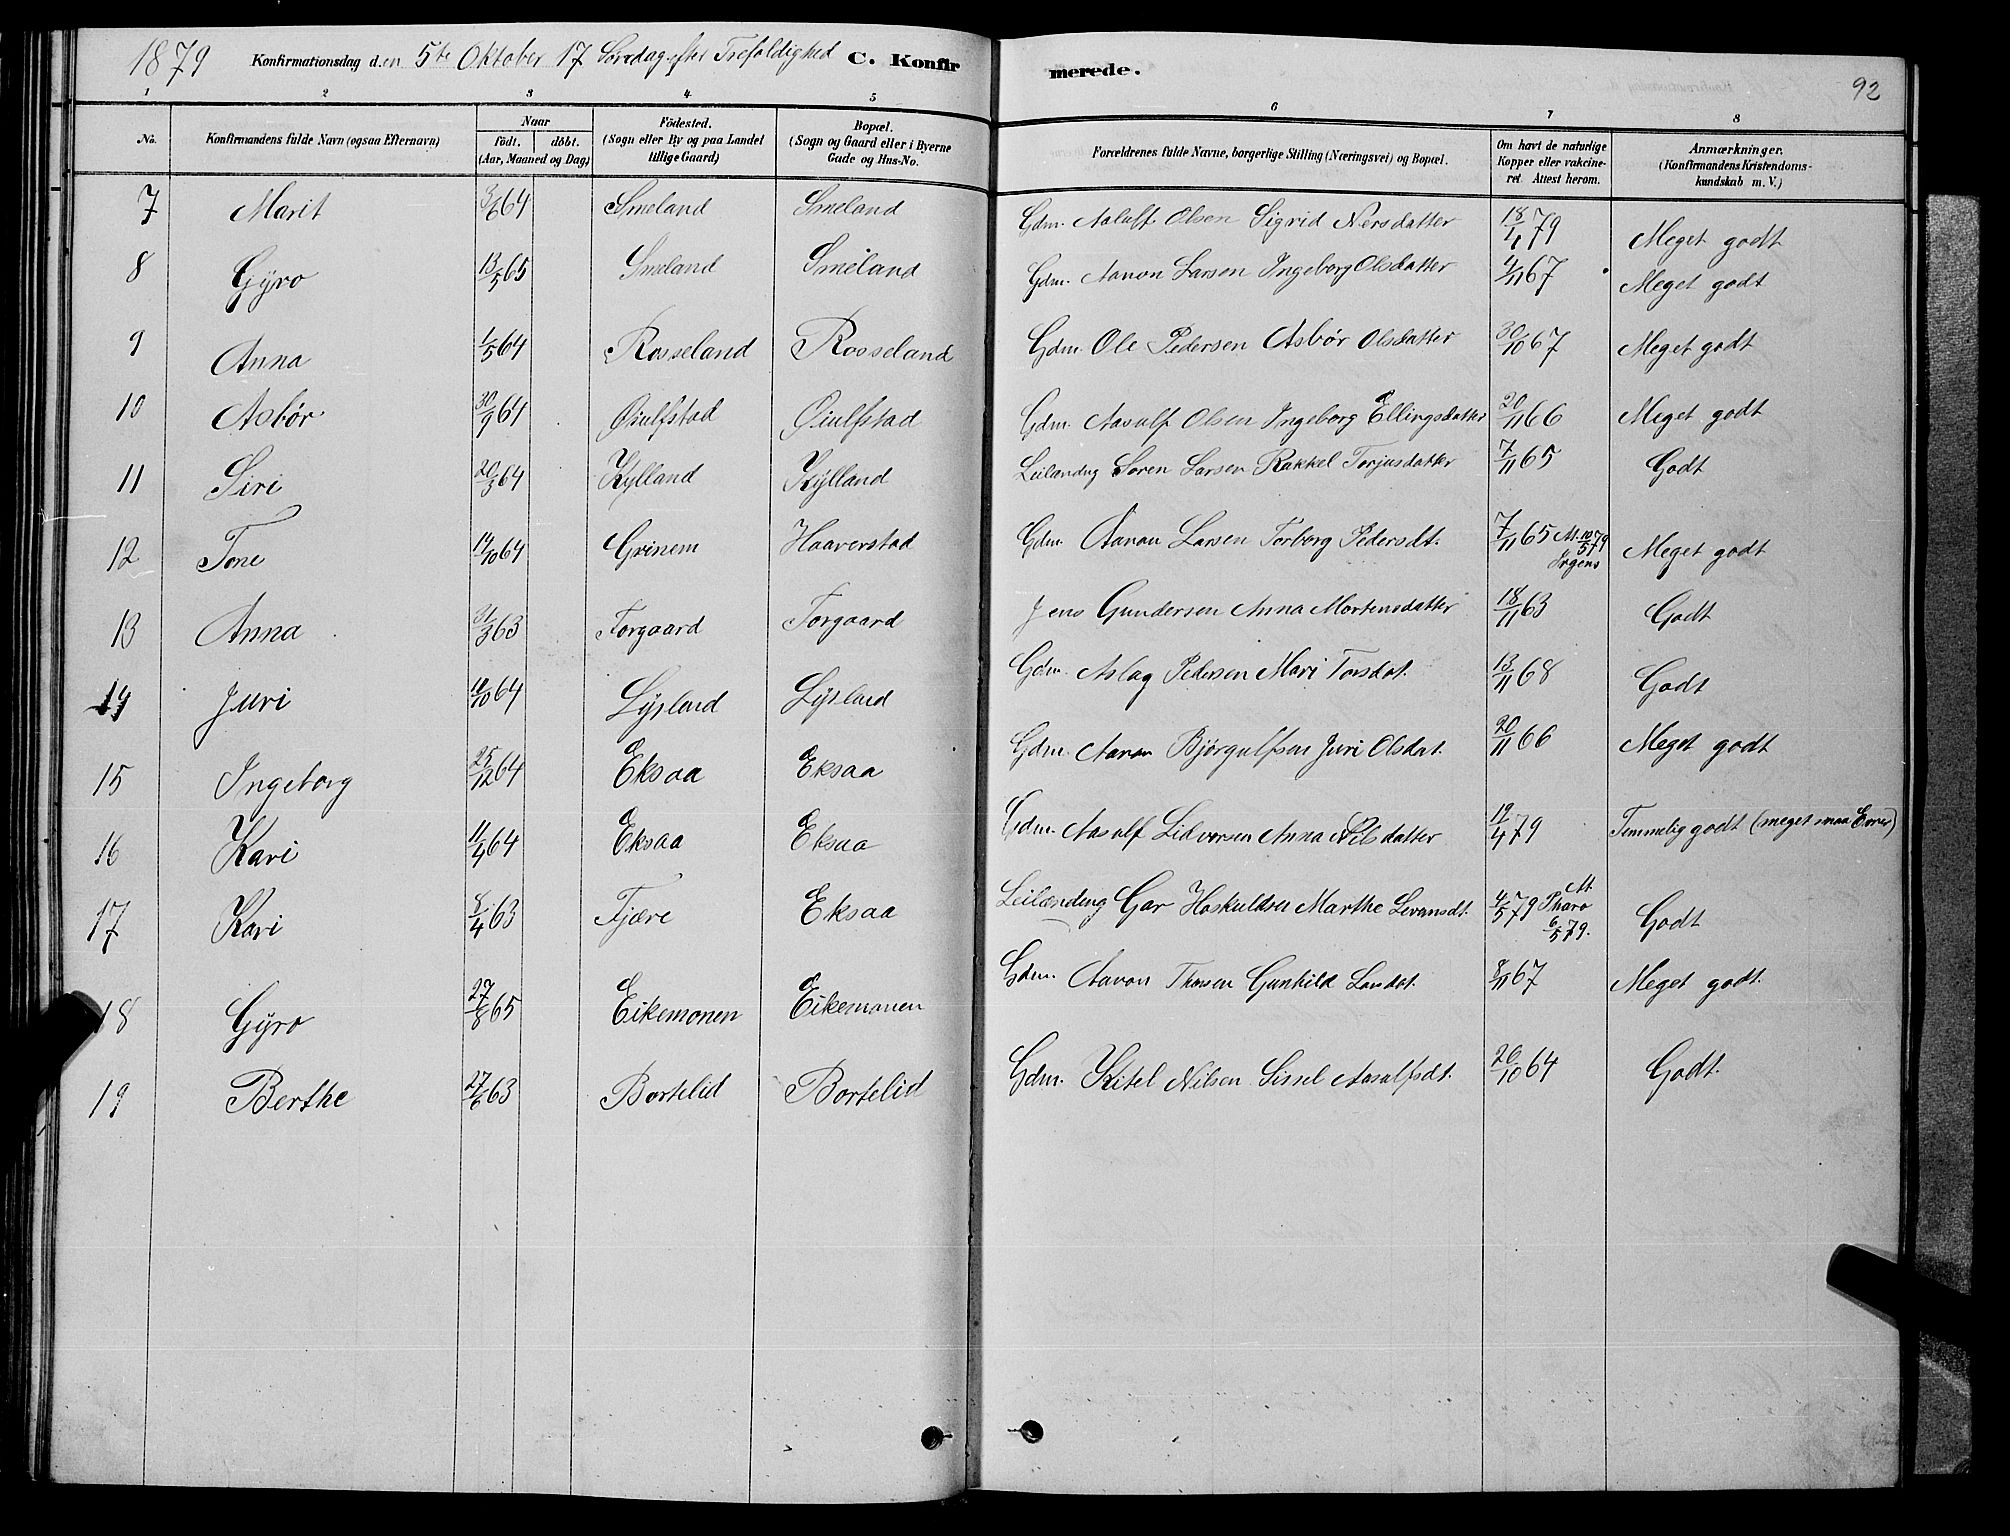 1879 Konfirmationsdag den 5te Oktober 17 Søndag efter Trefoldighed C. Konfirmerede. 92
1 2 3 4 5 6 7 8
No. Konfirmandens fulde Navn (ogsaa Efternavn) Naar født. døbt. (Aar, Maaned og Dag) Fødested. (Sogn eller By og paa Landet tillige Gaard) Bopæl. (Sogn og Gaard eller i Byerne Gade og Hus-No. Forældrenes fulde Navne, borgerlige Stilling (Næringsvei) og Bopæl. Om havt de naturlige Kopper eller vakcineret. Attest herom. Anmærkninger. (Konfirmandens Kristendomskundskab m. V.)
7 Marit 3/6 64 Smeland Smeland Gdm. Olsen Sigrid 18/4 79 Meget godt
8 Gyro 13/5 65 Smeland Smeland Gdm. Aanon Larsen Ingeborg Olsdatter 4/11 67 Meget godt
9 Anna 1/5 64 Rosseland Rosseland Gdm. Ole Pedersen Asbør Olsdatter 30/10 67 Meget godt
10 Asbør 30/9 64 Øiulfstad Øiulfstad Gdm. Aasulf Olsen Ingeborg Ellingsdatter 20/11 66 Meget godt
11 Siri 20/3 64 Kylland Kylland Leilændng Søren Larsen Rakkel Torjusdatter 7/11 65 Godt
12 Tone 14/10 64 Grinem Haaverstad Gdm. Aanon Larsen Torborg Pedersdt. 7/11 65 At. 10/5 79 Irgens Meget godt
13 Anna 31/3 63 Forgaard Forgaard Jens Gundersen Anna Mortensdatter 18/11 63 Godt
14 Juri 10/10 64 Lysland Lysland Gdm. Aslag Pedersen Mari Torsdat. 13/11 68 Godt
15 Ingeborg 25/12 64 Eksaa Eksaa Gdm. Aanon Bjørgulfsen Juri Olsdat. 20/11 66 Meget godt
16 Kari 11/4 64 Eksaa Eksaa Gdm. Aasulf Lidvorsen Anna Nilsdatter 19/4 79 Temmelig godt (meget smaa Evner)
17 Kari 8/4 63 Fjære Eksaa Leilænding Gar Hoskuldsen Marthe 4/5 79 At. Tharo 6/5 79. Godt
18 Gyro 27/8 65 Eikemonen Eikemonen Gdm. Aanon Gunhild 8/11 67 Meget godt.
19 Berthe 27/6 63 Bortelid Bortelid Gdm. Kitel Nilsen Sissel Aasulfsdt. 26/10 64 Godt.